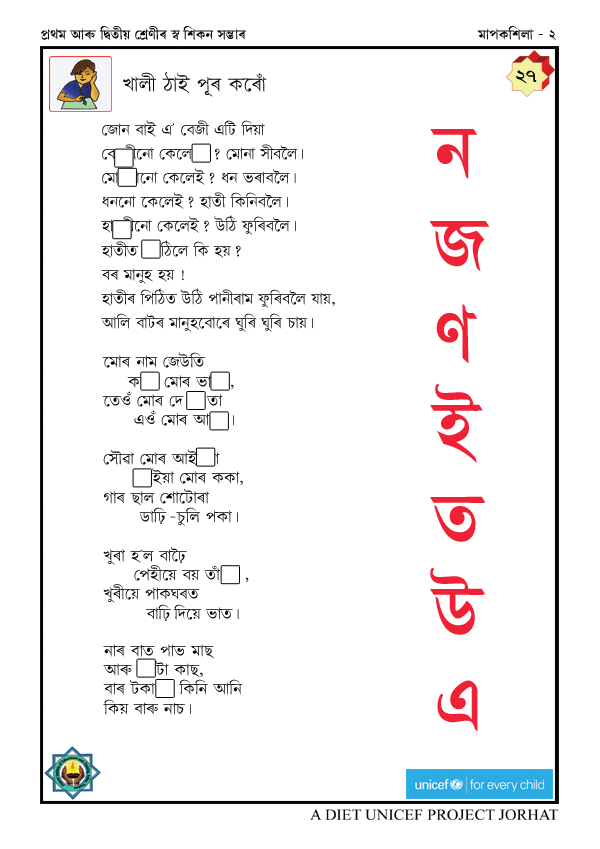 প্ৰথম আৰু দ্বিতীয় শ্ৰেণীৰ স্ব শিকন সম্ভাৰ
মাপকশিলা - ২
খালী ঠাই পূৰ কৰোঁ
২৭
জোন বাই এ' বেজী এটি দিয়া
বে □ ীনো কেলে □ ? মোনা সীবলৈ।
মো □ ানো কেলেই ? ধন ভৰাবলৈ।
ধননো কেলেই ? হাতী কিনিবলৈ।
হা □ ীনো কেলেই ? উঠি ফুৰিবলৈ।
হাতীত □ ঠিলে কি হয় ?
বৰ মানুহ হয় !
হাতীৰ পিঠিত উঠি পানীৰাম ফুৰিবলৈ যায়,
আলি বাটৰ মানুহবোৰে ঘুৰি ঘুৰি চায়।
মোৰ নাম জেউতি
ক □ মোৰ ভা □ ,
তেওঁ মোৰ দে □ তা
এওঁ মোৰ আ □ ।
সৌৱা মোৰ আই □ া
□ ইয়া মোৰ ককা,
গাৰ ছাল শোটোৰা
ডাঢ়ি -চুলি পকা।
খুৰা হ'ল বাঢ়ৈ
পেহীয়ে বয় তাঁ □ ,
খুৰীয়ে পাকঘৰত
বাঢ়ি দিয়ে ভাত।
নাৰ বাত পাভ মাছ
আৰু □ টা কাছ,
বাৰ টকা □ কিনি আনি
কিয় বাৰু নাচ।
ন
জ
ণ
ই
ত
উ
এ
unicef for every child
A DIET UNICEF PROJECT JORHAT